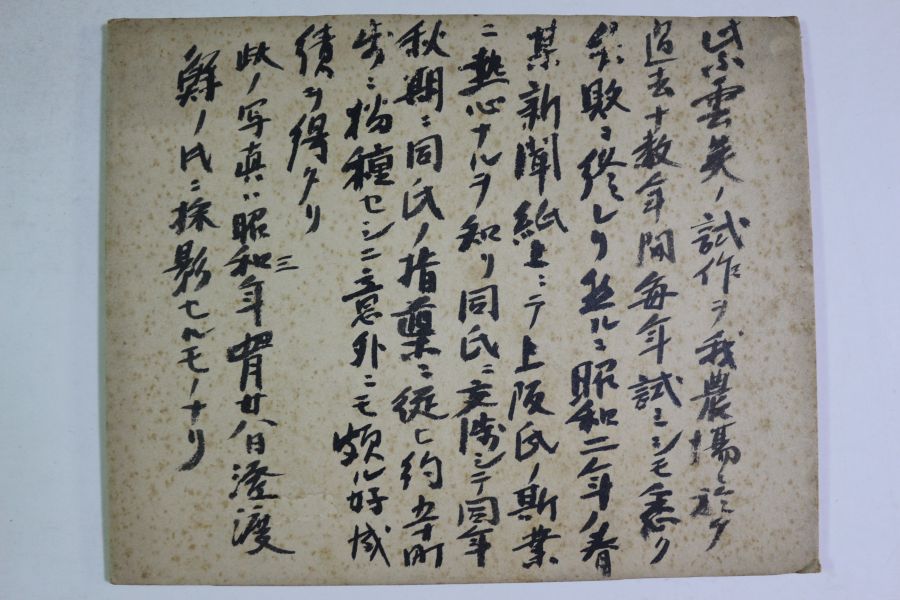 紫雲英ノ試作ヲ我農場ニ於テ
過去十数年間毎年試ミシモ悉ク
失敗ニ終レリ然ルニ昭和二年ノ春
某新聞紙上ニテ上阪氏ノ斯業
ニ熱心ナルヲ知リ同氏ニ交渉シテ同年
秋期ニ同氏ノ指導ニ従ヒ約五十町
歩ニ播種セシニ意外ニモ頗ル好成
績ヲ得タリ
此ノ写真ハ昭和三年四月廿八日渡
鮮ノ氏ニ撮影セルモノナリ